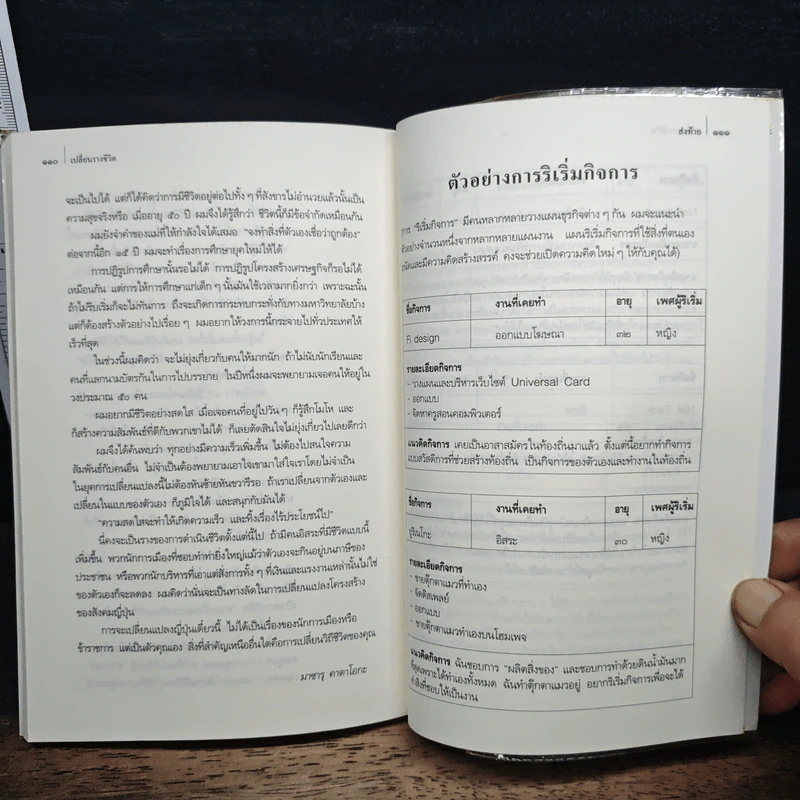 ๑๑๐ เปลี่ยนรางชีวิต
จะเป็นไปได้ แต่ก็ได้คิดว่าการมีชีวิตอยู่ต่อไปทั้ง ๆ ที่สังขารไม่อำนวยแล้วนั้นเป็น
ความสุขจริงหรือ เมื่ออายุ ๕๐ ปี ผมจึงได้รู้สึกว่า ชีวิตนี้ก็มีข้อจำกัดเหมือนกัน
ผมยังจำคำของแม่ที่ให้กำลังใจได้เสมอ “จงทำสิ่งที่ตัวเองเชื่อว่าถูกต้อง”
ต่อจากนี้อีก ๑๕ ปี ผมจะทำเรื่องการศึกษายุคใหม่ให้ได้
การปฏิรูปการศึกษานั้นรอไม่ได้ การปฏิรูปโครงสร้างเศรษฐกิจก็รอไม่ได้
เหมือนกัน แต่การให้การศึกษาแก่เด็ก ๆ นั้นมันใช้เวลามากยิ่งกว่า เพราะฉะนั้น
ถ้าไม่รีบเริ่มก็จะไม่ทันการ ถึงจะเกิดการกระทบกระทั่งกับทางมหาวิทยาลัยบ้าง
แต่ก็ต้องสร้างตัวอย่างไปเรื่อย ๆ ผมอยากให้วงการนี้กระจายไปทั่วประเทศให้
เร็วที่สุด
ในช่วงนี้ผมคิดว่า จะไม่ยุ่งเกี่ยวกับคนให้มากนัก ถ้าไม่นับนักเรียนและ
คนที่แลกนามบัตรกันในการไปบรรยาย ในปีหนึ่งผมจะพยายามเจอคนให้อยู่ใน
วงประมาณ ๕๐ คน
ผมอยากมีชีวิตอย่างสดใส เมื่อเจอคนที่อยู่ไปวัน ๆ ก็รู้สึกโมโห และ
ก็สร้างความสัมพันธ์ที่ดีกับพวกเขาไม่ได้ ก็เลยตัดสินใจไม่ยุ่งเกี่ยวไปเลยดีกว่า
ผมจึงได้ค้นพบว่า ทุกอย่างมีความเร็วเพิ่มขึ้น ไม่ต้องไปสนใจความ
สัมพันธ์กับคนอื่น ไม่จำเป็นต้องพยายามเอาใจเขามาใส่ใจเราโดยไม่จำเป็น
ในยุคการเปลี่ยนแปลงนี้ไม่ต้องหันซ้ายหันขวารีรอ ถ้าเราเปลี่ยนจากตัวเองและ
เปลี่ยนในแบบของตัวเอง ก็ภูมิใจได้ และสนุกกับมันได้
“ความสดใสจะทำให้เกิดความเร็ว และทิ้งเรื่องไร้ประโยชน์ไป”
นี่คงจะเป็นรางของการดำเนินชีวิตตั้งแต่นี้ไป ถ้ามีคนอิสระที่มีชีวิตแบบนี้
เพิ่มขึ้น พวกนักการเมืองที่ชอบทำท่ายิ่งใหญ่แม้ว่าตัวเองจะกินอยู่บนภาษีของ
ประชาชน หรือพวกนักบริหารที่เอาแต่สั่งการทั้ง ๆ ที่เงินและแรงงานเหล่านั้นไม่ใช่
ของตัวเองก็จะลดลง ผมคิดว่านั่นจะเป็นทางลัดในการเปลี่ยนแปลงโครงสร้าง
ของสังคมญี่ปุ่น
การจะเปลี่ยนแปลงญี่ปุ่นเดี๋ยวนี้ ไม่ได้เป็นเรื่องของนักการเมืองหรือ
ข้าราชการ แต่เป็นตัวคุณเอง สิ่งที่สำคัญเหนืออื่นใดคือการเปลี่ยนวิถีชีวิตของคุณ
มาซารุ คาตาโอกะ
ส่งท้าย ๑๑๑
ตัวอย่างการริเริ่มกิจการ
การ “ริเริ่มกิจการ” มีคนหลากหลายวางแผนธุรกิจต่าง ๆ กัน ผมจะแนะนำ
ตัวอย่างจำนวนหนึ่งจากหลากหลายแผนงาน แผนริเริ่มกิจการที่ใช้สิ่งที่ตนเอง
ถนัดและมีความคิดสร้างสรรค์ คงจะช่วยเปิดความคิดใหม่ ๆ ให้กับคุณได้)
ชื่อกิจการ งานที่เคยทำ อายุ เพศผู้ริเริ่ม
Fi design ออกแบบโฆษณา ๓๒ หญิง
รายละเอียดกิจการ
- วางแผนและบริหารเว็บไซต์ Universal Card
- ออกแบบ
- จัดหาครูสอนคอมพิวเตอร์
แนวคิดกิจการ เคยเป็นอาสาสมัครในท้องถิ่นมาแล้ว ตั้งแต่นี้อยากทำกิจการ
แบบสวัสดิการที่ช่วยสร้างท้องถิ่น เป็นกิจการของตัวเองและทำงานในท้องถิ่น
ชื่อกิจการ งานที่เคยทำ อายุ เพศผู้ริเริ่ม
อิสระ ๓๐ หญิง
รายละเอียดกิจการ
- ขายตุ๊กตาแมวที่ทำเอง
- จัดดิสเพลย์
- ออกแบบ
- ขายตุ๊กตาแมวทำเองบนโฮมเพจ
แนวคิดกิจการ ฉันชอบการ “ผลิตสิ่งของ” และชอบการทำด้วยดินน้ำมันมาก
ที่สุดเพราะได้ทำเองทั้งหมด ฉันทำตุ๊กตาแมวอยู่ อยากริเริ่มกิจการเพื่อจะได้
ทำสิ่งที่ชอบให้เป็นงาน